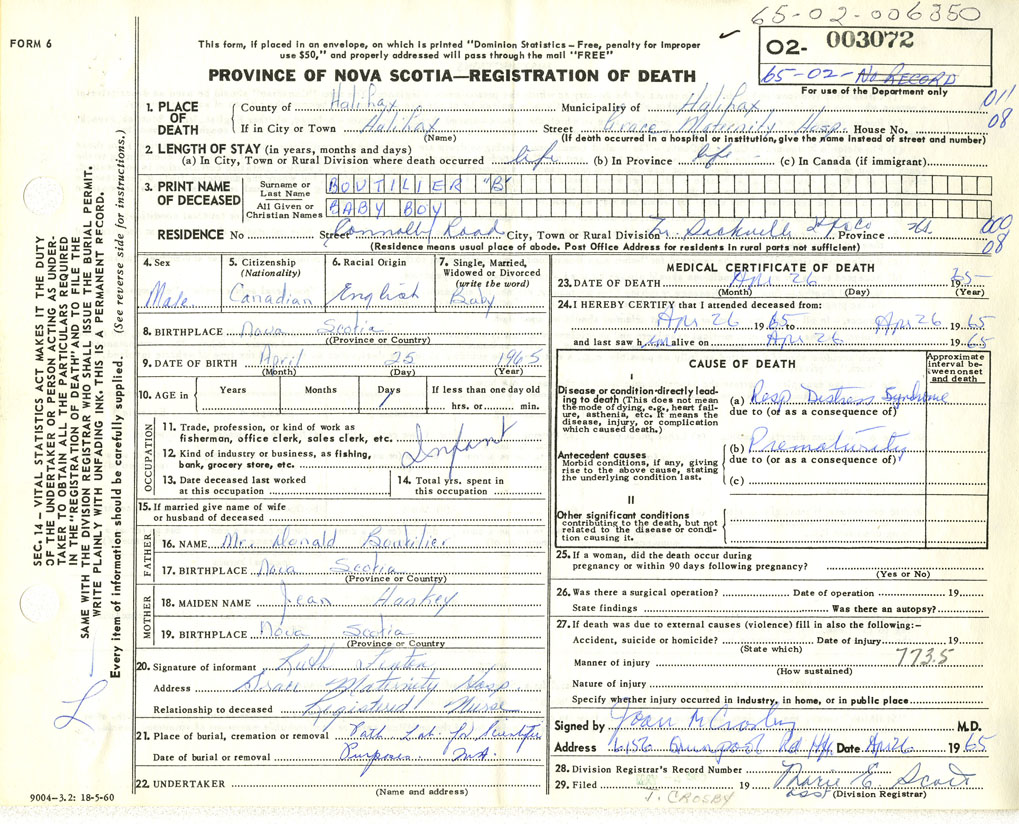 65-02-006350
FORM 6
This form, if placed in an envelope, on which is printed "Dominion Statistics – Free, penalty for improper
use $50," and properly addressed will pass through the mail "FREE"
O2- 003072
65-02- No RECORD
For use of the Department only
PROVINCE OF NOVA SCOTIA—REGISTRATION OF DEATH
1. PLACE OF DEATH
County of Halifax Municipality of Halifax 011
If in City or Town Halifax Street Grace Maternity Hosp. House No. 08
(Name) (If death occurred in a hospital or institution, give the name instead of street and number)
2. LENGTH OF STAY (in years, months and days)
(a) In City, Town or Rural Division where death occurred life (b) In Province life - (c) In Canada (if immigrant)
3. PRINT NAME OF DECEASED
Surname or Last Name BOUTILIER "B"
All Given or Christian Names BABY BOY
RESIDENCE No Street Connolly Road City, Town or Rural Division Sackville Province N.S. 000
(Residence means usual place of abode. Post Office Address for residents in rural parts not sufficient) 08
4. Sex Male
5. Citizenship (Nationality) Canadian
6. Racial Origin English
7. Single, Married, Widowed or Divorced (write the word) Baby
8. BIRTHPLACE Nova Scotia
(Province or Country)
9. DATE OF BIRTH April 25 1965
(Month) (Day) (Year)
10. AGE in Years Months Days 1 If less than one day old
hrs. or min.
OCCUPATION
11. Trade, profession, or kind of work as
fisherman, office clerk, sales clerk, etc. Infant
12. Kind of industry or business, as fishing,
bank, grocery store, etc.
13. Date deceased last worked
at this occupation
14. Total yrs. spent in
this occupation
15. If married give name of wife
or husband of deceased
FATHER
16. NAME Mr. Donald Boutilier
17. BIRTHPLACE Nova Scotia
(Province or Country)
MOTHER
18. MAIDEN NAME Jean
19. BIRTHPLACE Nova Scotia
(Province or Country
20. Signature of informant Ruth
Address Grace Maternity Hosp
Relationship to deceased Registered Nurse
21. Place of burial, cremation or removal Path Lab. for Scientific
Date of burial or removal Purposes
22. UNDERTAKER
(Name and address)
9004–3.2: 18-5-60
MEDICAL CERTIFICATE OF DEATH
23. DATE OF DEATH Apr 26 1965
(Month) (Day) (Year)
24. I HEREBY CERTIFY that I attended deceased from:
Apr 26 1965 to Apr 26 1965
and last saw him alive on Apr 26 1965
CAUSE OF DEATH
Approximate interval between onset and death
I
Disease or condition directly leading to death (This does not mean the mode of dying, e.g., heart failure, asthenia, etc. It means the disease, injury, or complication which caused death.)
(a) Resp. Distress Syndrome
due to (or as a consequence of)
Antecedent causes
Morbid conditions, if any, giving rise to the above cause, stating the underlying condition last.
(b) Prematurity
due to (or as a consequence of)
(c)
II
Other significant conditions
contributing to the death, but not related to the disease or condition causing it.
25. If a woman, did the death occur during
pregnancy or within 90 days following pregnancy?
(Yes or No)
26. Was there a surgical operation? Date of operation 19
State findings Was there an autopsy?
27. If death was due to external causes (violence) fill in also the following:–
Accident, suicide or homicide? Date of injury 19
(State which) 773.5
Manner of injury
(How sustained)
Nature of injury
Specify whether injury occurred in industry, in home, or in public place
Signed by Joan M Crosby M.D.
Address 6156 Quinpool Rd Hfx Date Apr 26 1965
28. Division Registrar's Record Number
29. Filed 19 Marie E. Scott
J. CROSBY asst (Division Registrar)
SEC. 14 – VITAL STATISTICS ACT MAKES IT THE DUTY
OF THE UNDERTAKER OR PERSON ACTING AS UNDER-
TAKER TO OBTAIN ALL THE PARTICULARS REQUIRED
IN THE "REGISTRATION OF DEATH" AND TO FILE THE
SAME WITH THE DIVISION REGISTRAR WHO SHALL ISSUE THE BURIAL PERMIT.
WRITE PLAINLY WITH UNFADING INK. THIS IS A PERMANENT RECORD.
Every item of information should be carefully supplied. (See reverse side for instructions.)
L